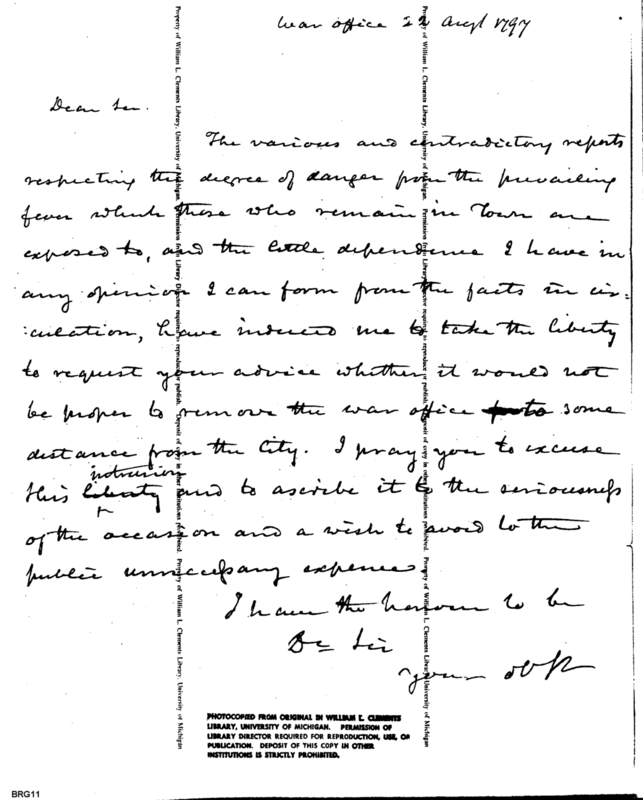 War office 22 Augt 1797
Dear Sir.
The various and contradictory reports
respecting the degree of danger from the prevailing
fever which those who remain in Town are
exposed to, and the little dependence I have in
any opinion I can form from the facts in cir=
:culation, have induced me to take the liberty
to request your advice whether it would not
be proper to remove the war office to some
distance from the City. I pray you to excuse
intrusion
this liberty and to ascribe it to the seriousness
of the occasion and a wish to avoid to the
public unnecessary expenses.
I have the honour to be
Dr Sir
your
Property of William L. Clements Library, University of Michigan. Permission from Library Director required to reproduce or publish. Deposit of copy in other institutions prohibited. Property of William L. Clements Library, University of Michigan
Property of William L. Clements Library, University of Michigan. Permission from Library Director required to reproduce or publish. Deposit of copy in other institutions prohibited. Property of William L. Clements Library, University of Michigan
PHOTOCOPIED FROM ORIGINAL IN WILLIAM L. CLEMENTS
LIBRARY, UNIVERSITY OF MICHIGAN. PERMISSION OF
LIBRARY DIRECTOR REQUIRED FOR REPRODUCTION, USE, OR
PUBLICATION. DEPOSIT OF THIS COPY IN OTHER
INSTITUTIONS IS STRICTLY PROHIBITED.
BRG11